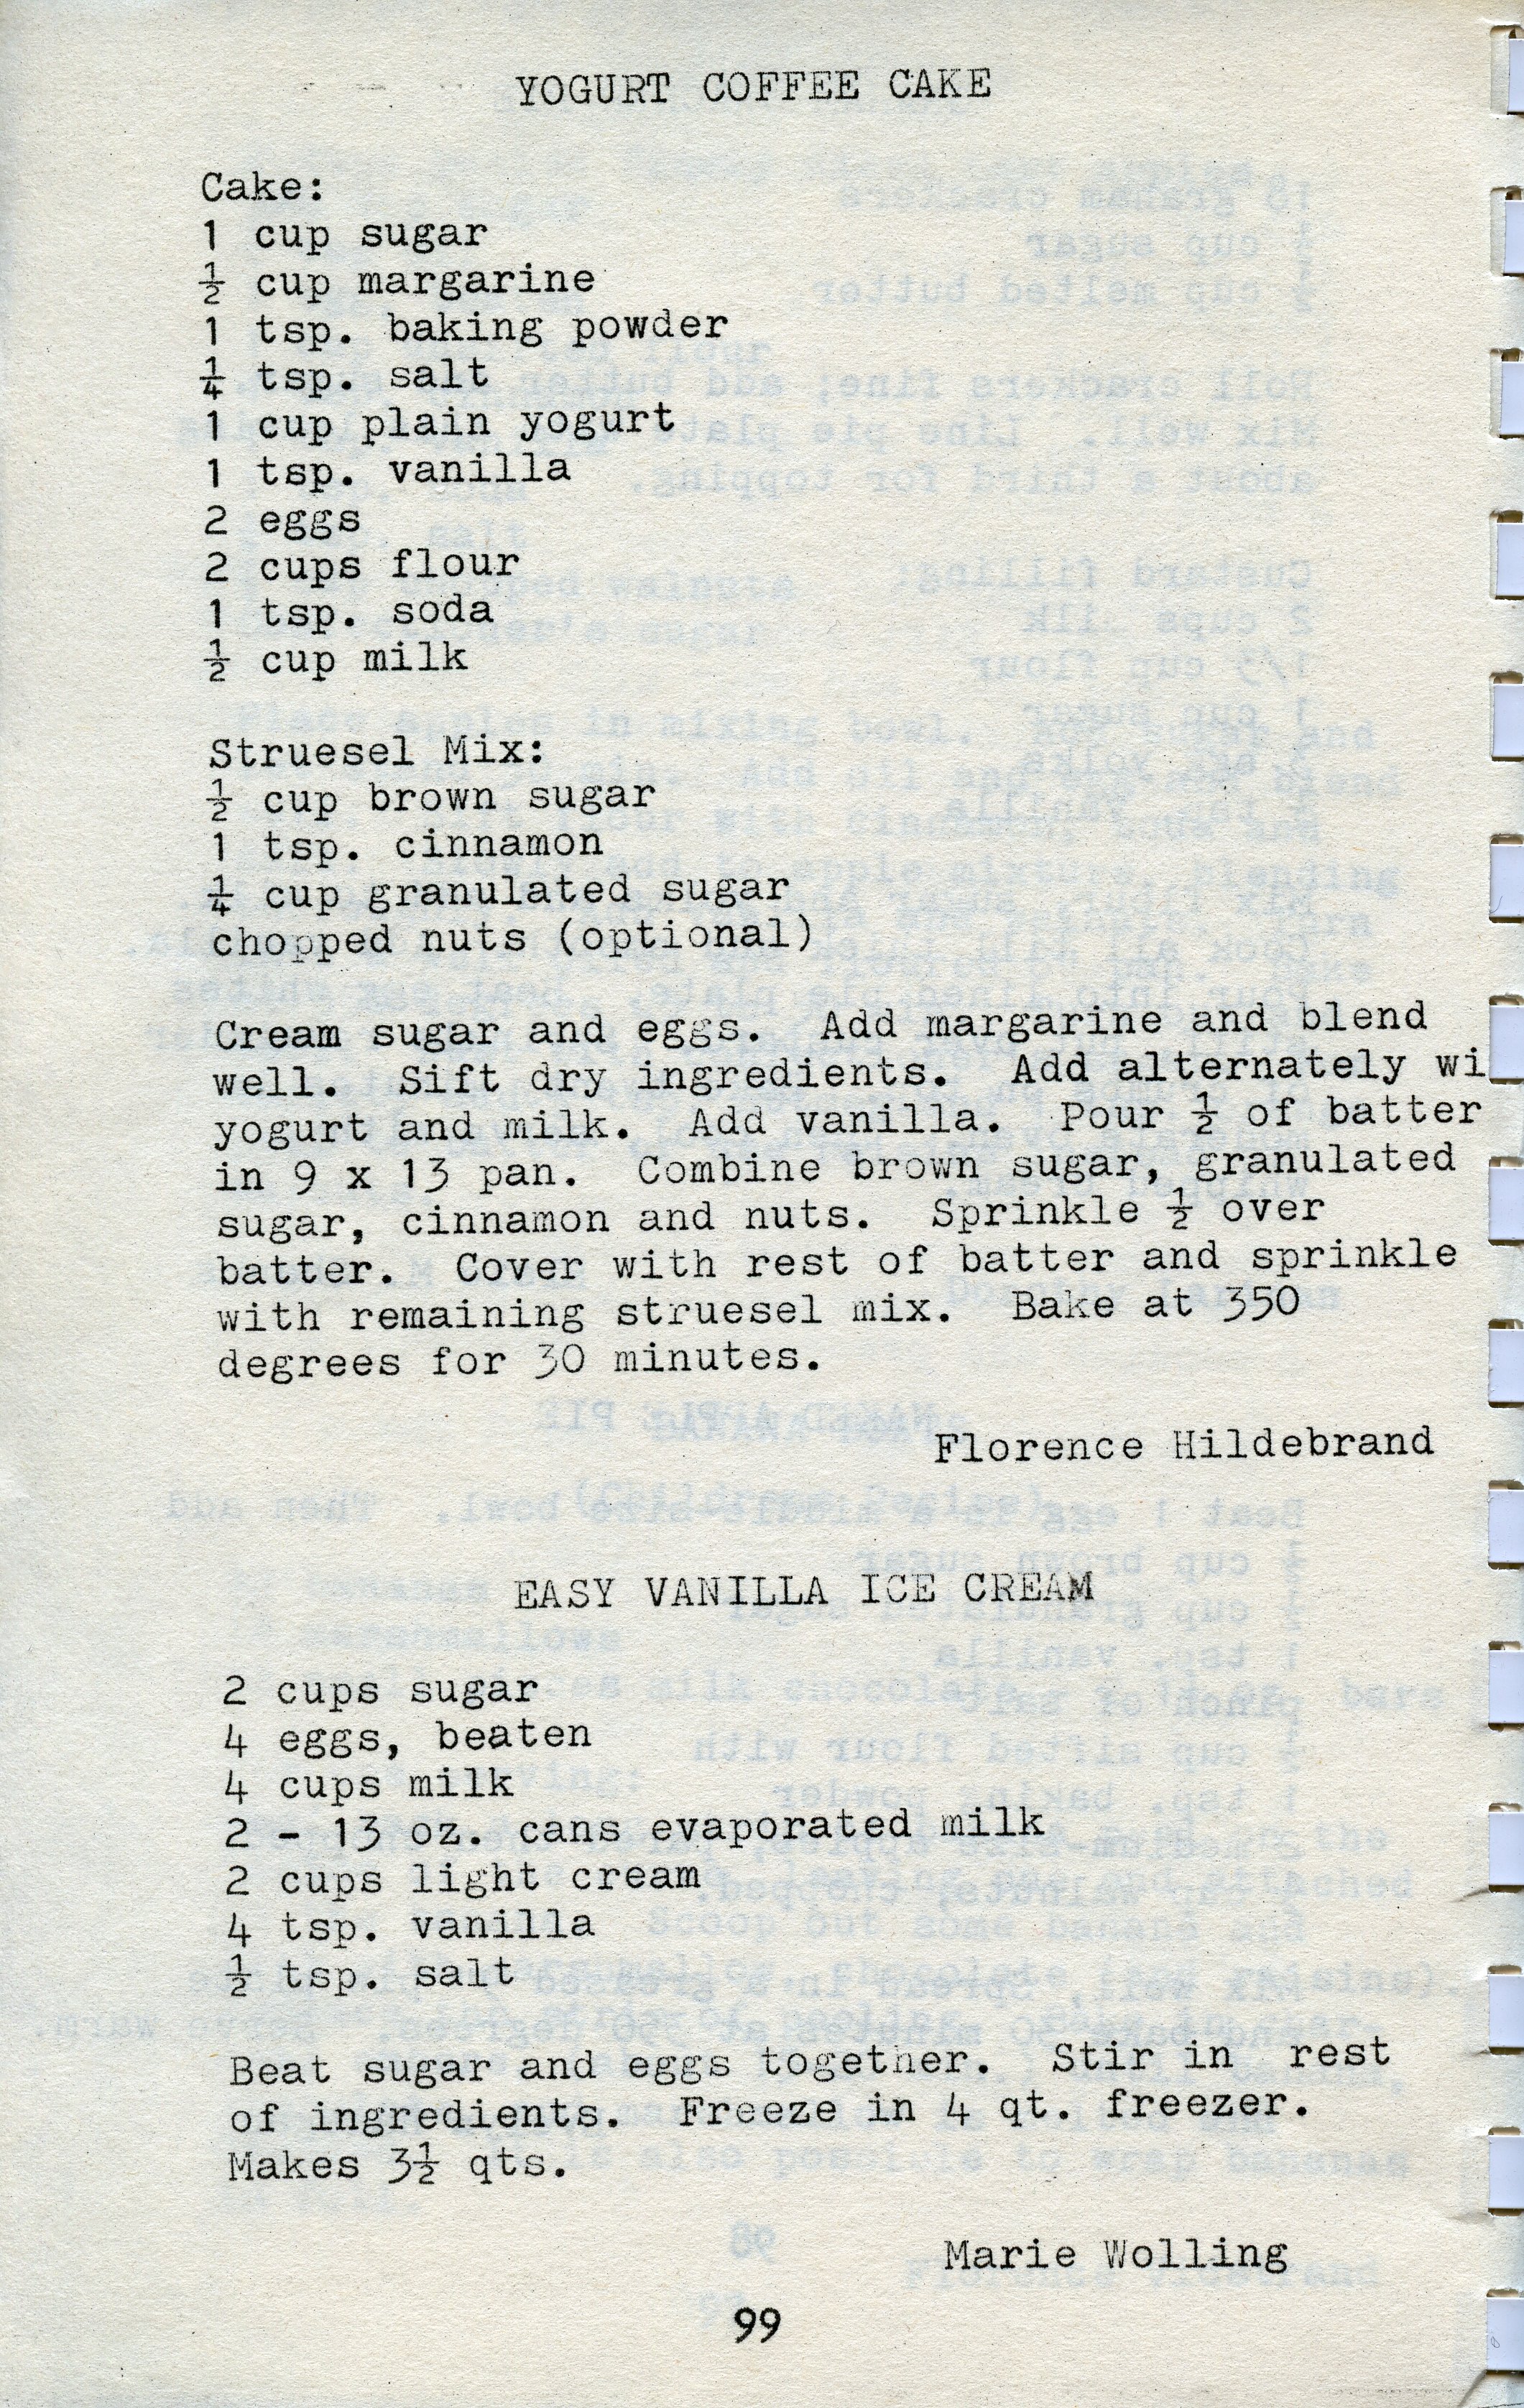 YOGURT COFFEE CAKE
Cake:
1 cup sugar
½ cup margarine
1 tsp. baking powder
¼ tsp. salt
1 cup plain yogurt
1 tsp. vanilla
2 eggs
2 cups flour
1 tsp. soda
½ cup milk
Struesel Mix:
½ cup brown sugar
1 tsp. cinnamon
¼ cup granulated sugar
chopped nuts (optional)
Cream sugar and eggs. Add margarine and blend
well. Sift dry ingredients. Add alternately wi
yogurt and milk. Add vanilla. Pour ½ of batter
in 9 x 13 pan. Combine brown sugar, granulated
sugar, cinnamon and nuts. Sprinkle ½ over
batter. Cover with rest of batter and sprinkle
with remaining struesel mix. Bake at 350
degrees for 30 minutes.
Florence Hildebrand
EASY VANILLA ICE CREAM
2 cups sugar
4 eggs, beaten
4 cups milk
2 - 13 oz. cans evaporated milk
2 cups light cream
4 tsp. vanilla
½ tsp. salt
Beat sugar and eggs together. Stir in rest
of ingredients. Freeze in 4 qt. freezer.
Makes 3½ qts.
Marie Wolling
99